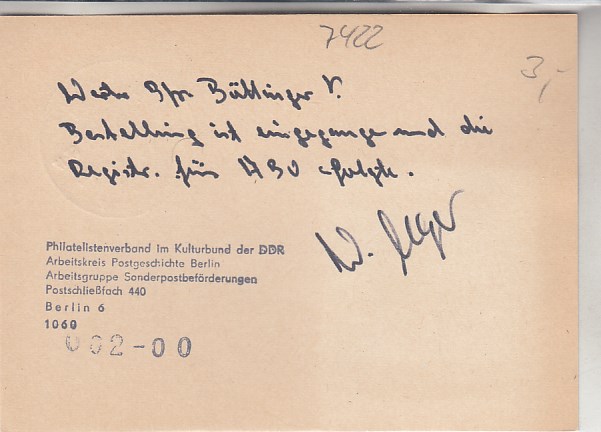 7422
3,-
Werte Bfr. Büttinger V.
Bestellung ist eingegange und die
Registr. für ABO erfolgte.
W. Geyer
Philatelistenverband im Kulturbund der DDR
Arbeitskreis Postgeschichte Berlin
Arbeitsgruppe Sonderpostbeförderungen
Postschließfach 440
Berlin 6
1060
002-00